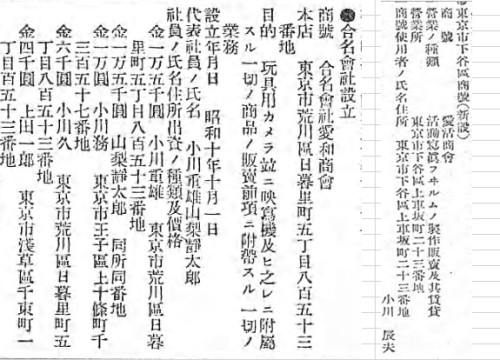 東京市下谷區商號(新設)
商號　愛活商會
營業ノ種類　活動寫眞フヰルムノ製作販賣及其賃貸
營業所　東京市下谷區上車坂町二十三番地
商號使用者ノ氏名住所　東京市下谷區上車坂町二十三番地
小川　辰夫
合名會社設立
商號　合名會社愛和商會
本店　東京市荒川區日暮里町五丁目八百五十三
番地
目的　玩具用カメラ竝ニ映寫機及ヒ之レニ附屬
スル一切ノ商品ノ販賣前項ニ附帶スル一切ノ
業務
設立年月日　昭和十年十月一日
代表社員ノ氏名　小川重雄山梨靜太郎
社員ノ氏名住所出資ノ種類及價格
金一万五千圓　小川重雄　東京市荒川區日暮
里町五丁目八百五十三番地
金一万五千圓　山梨靜太郎　同所同番地
金一万圓　小川務　東京市王子區上十條町千
三百五十七番地
金六千圓　小川久　東京市荒川區日暮里町五
丁目八百五十三番地
金四千圓　上田一郎　東京市淺草區千束町一
丁目百五十三番地